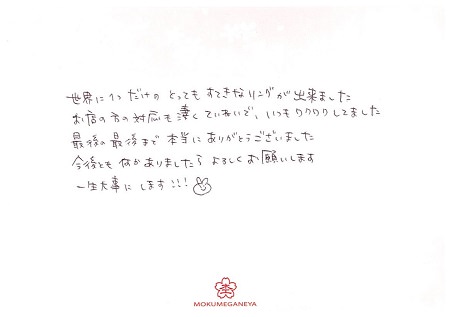 世界に1つだけの とっても すてきなリングが 出来ました
お店の方の対応も凄くていねいで、いつもワクワクしてました
最後の最後まで 本当に ありがとうございました
今後とも 何かありましたら よろしくお願いします
一生大事に します!!!
杢
MOKUMEGANEYA